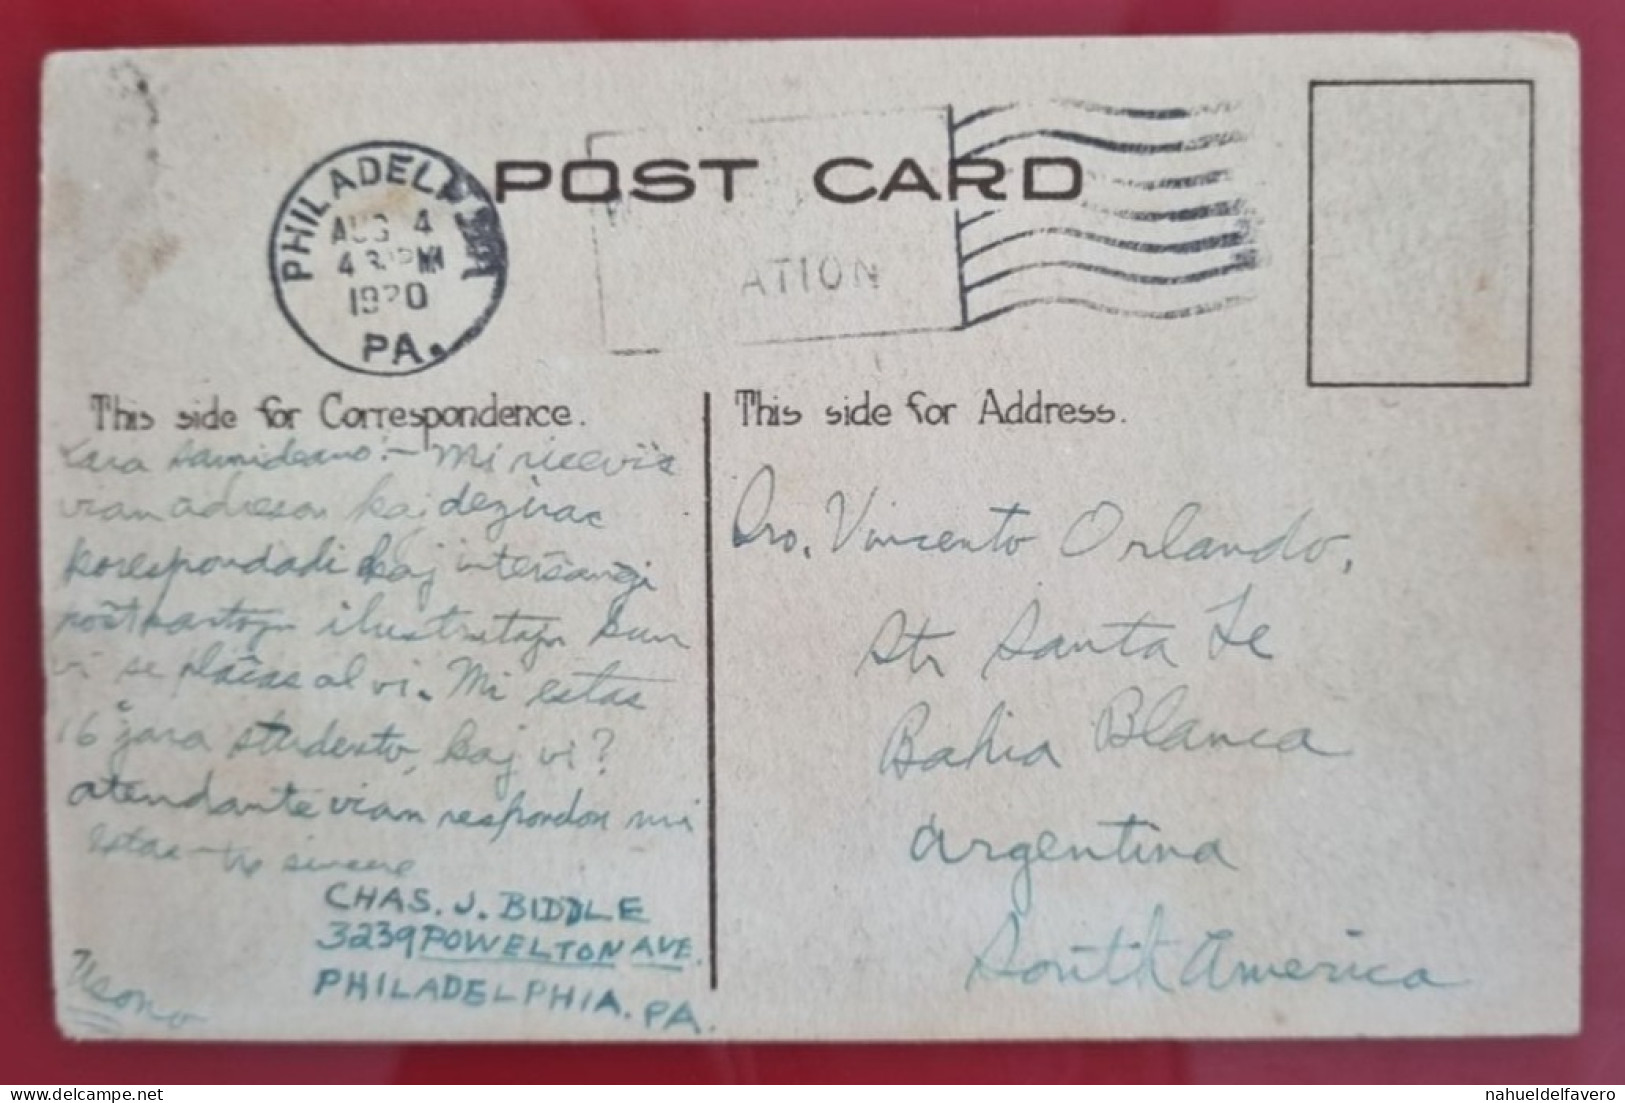 POST CARD
PHILADELP
AUG 4
4 30 PM
1920
PA.
ATION
This side for Correspondence.
Kara samideano:- Mi ricevis
vian adreson kaj deziras
korespondadi kaj interŝanĝi
poŝtkartojn ilustritajn kun
vi se plaĉas al vi. Mi estas
16 jara studento, kaj vi?
atendante vian respondon mi
estas tre sincere
CHAS. J. BIDDLE
3239 POWELTON AVE.
PHILADELPHIA. PA.
Usono
This side for Address.
Dro. Vincento Orlando,
Str Santa Fe
Bahia Blanca
Argentina
South America
nahueldelfavero